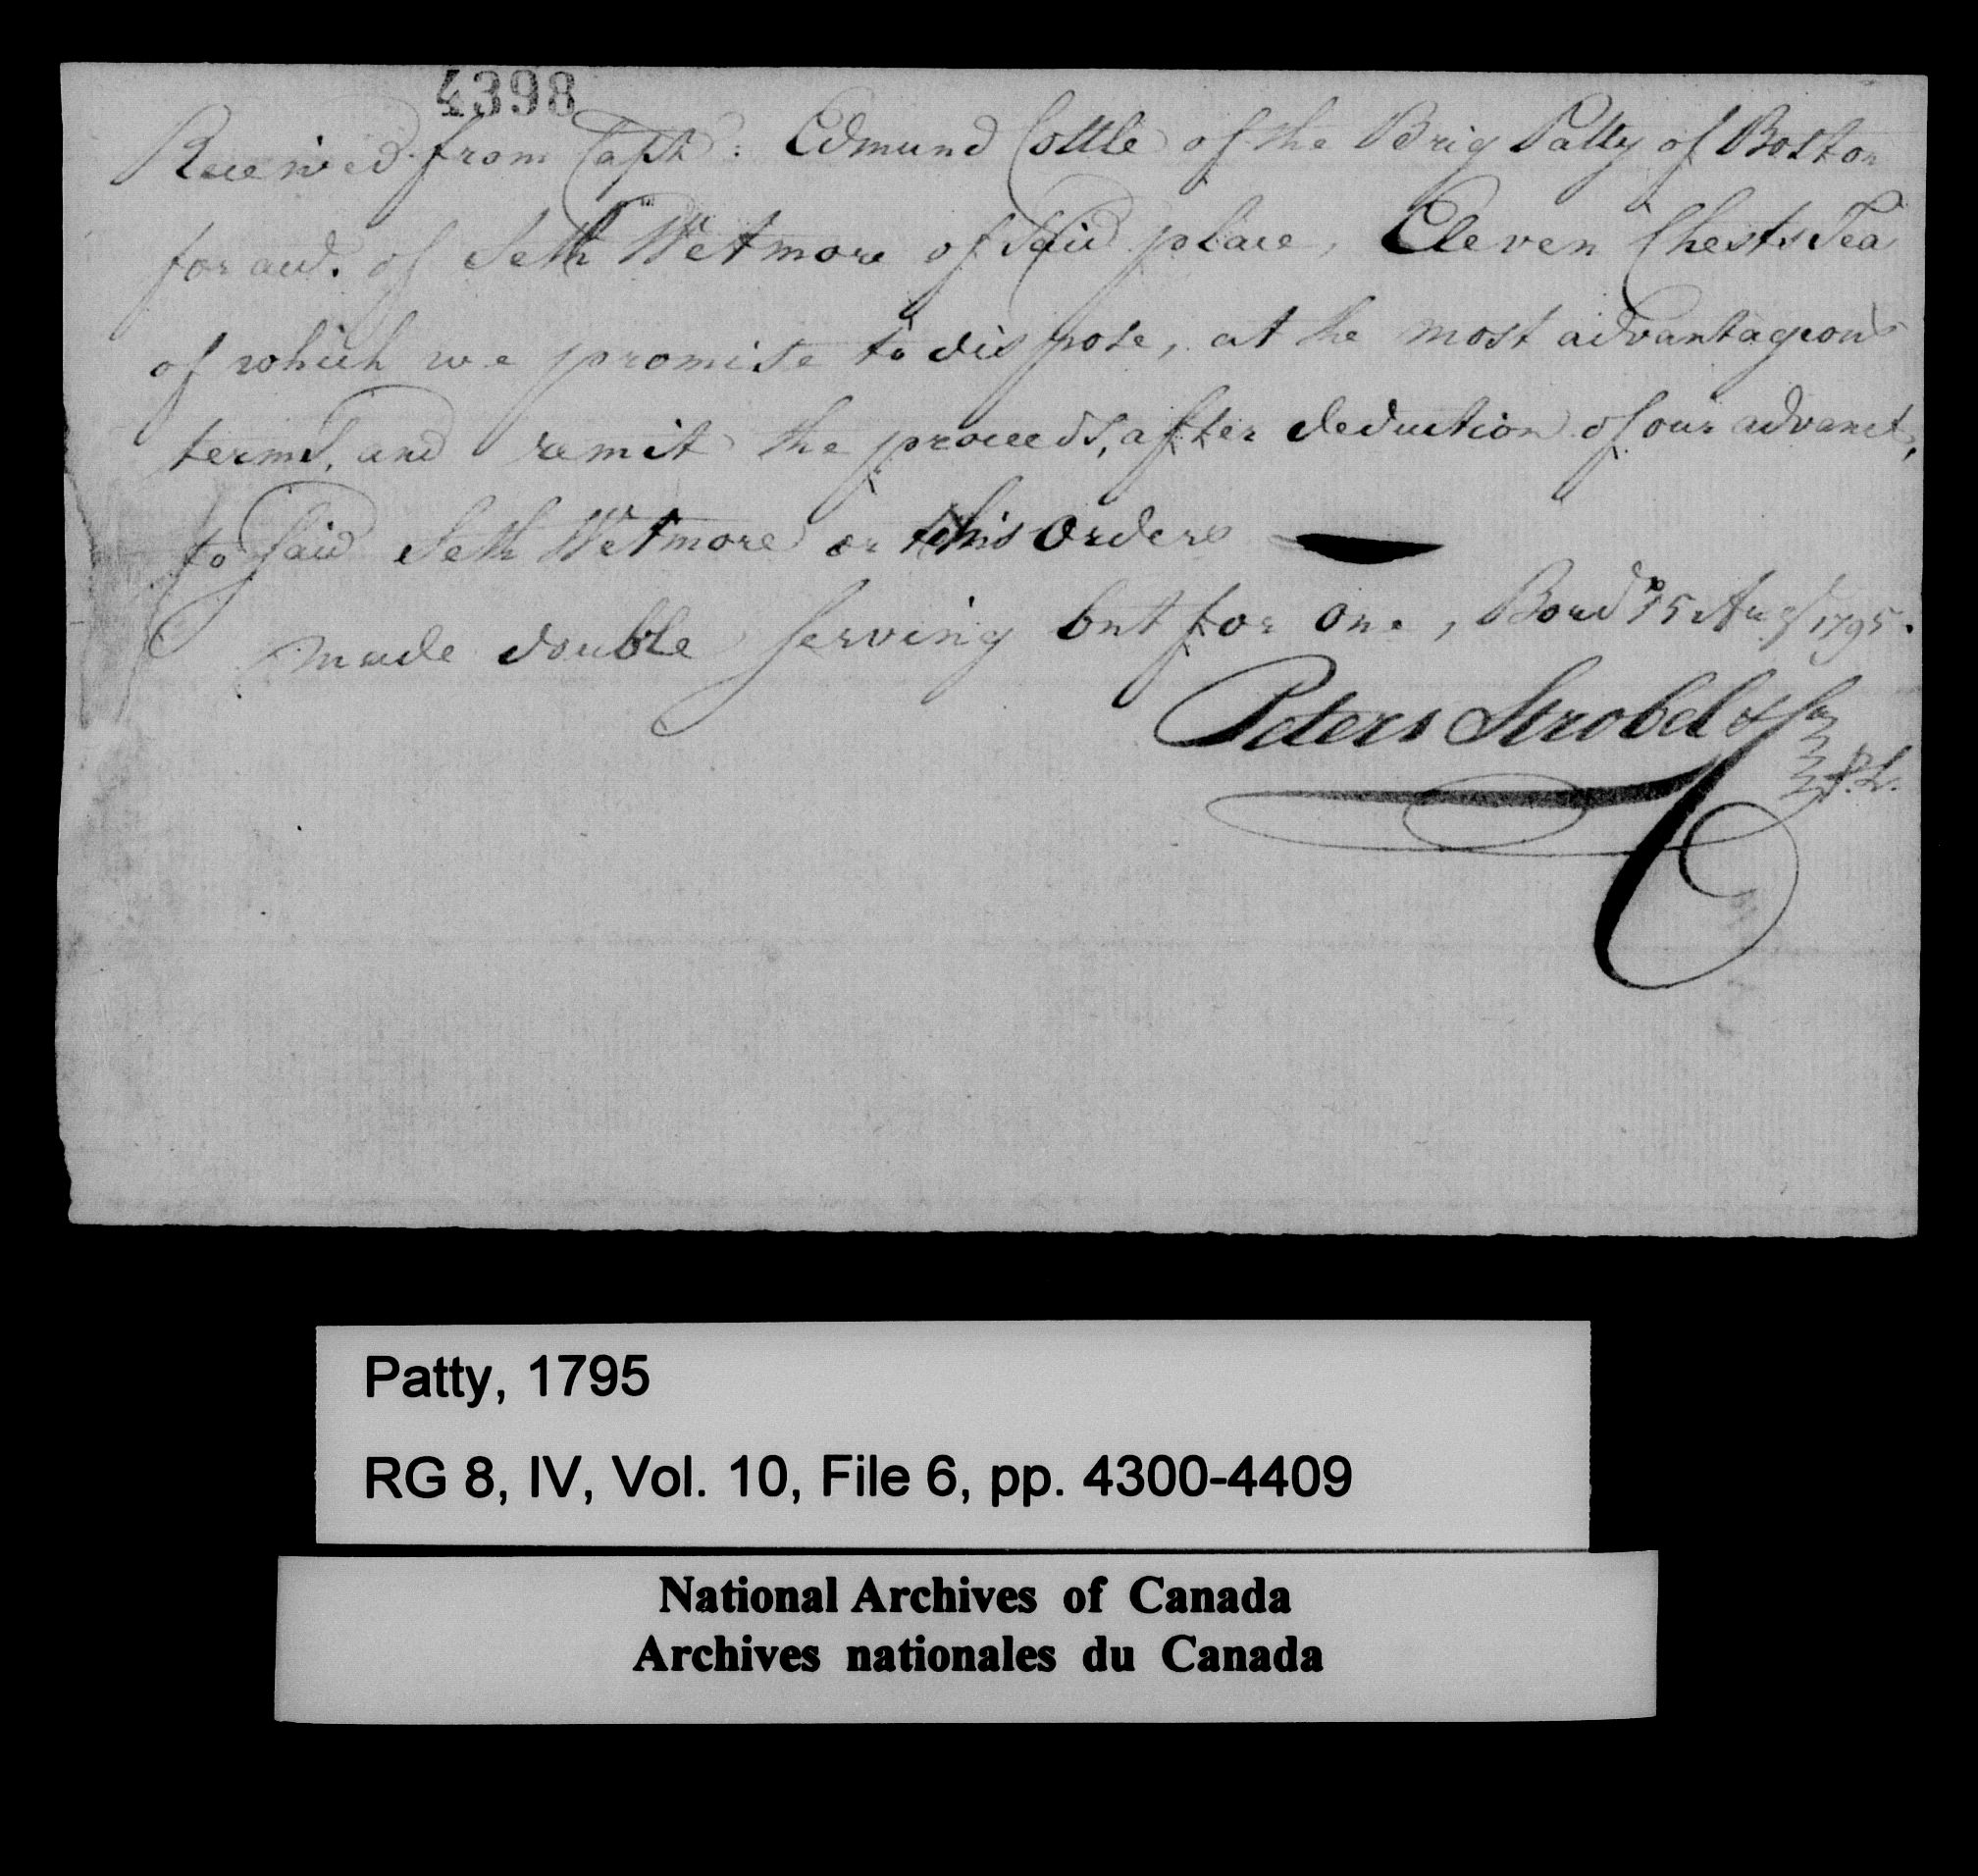 4398
Received from Capt: Edmund Cottle of the Brig Patty of Boston
for acct. of Seth Wetmore of Said place, Eleven Chests Tea
of which we promise to dispose, at the most advantageous
terms, and remit the proceeds, after deduction of our advance,
to Said Seth Wetmore or his Order
made double Serving but for One, Bordx 15 Augt 1795.
Peters Strobel & Co
Patty, 1795
RG 8, IV, Vol. 10, File 6, pp. 4300-4409
National Archives of Canada
Archives nationales du Canada